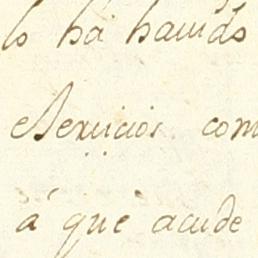 lo há havido
Servicios com
á que acude